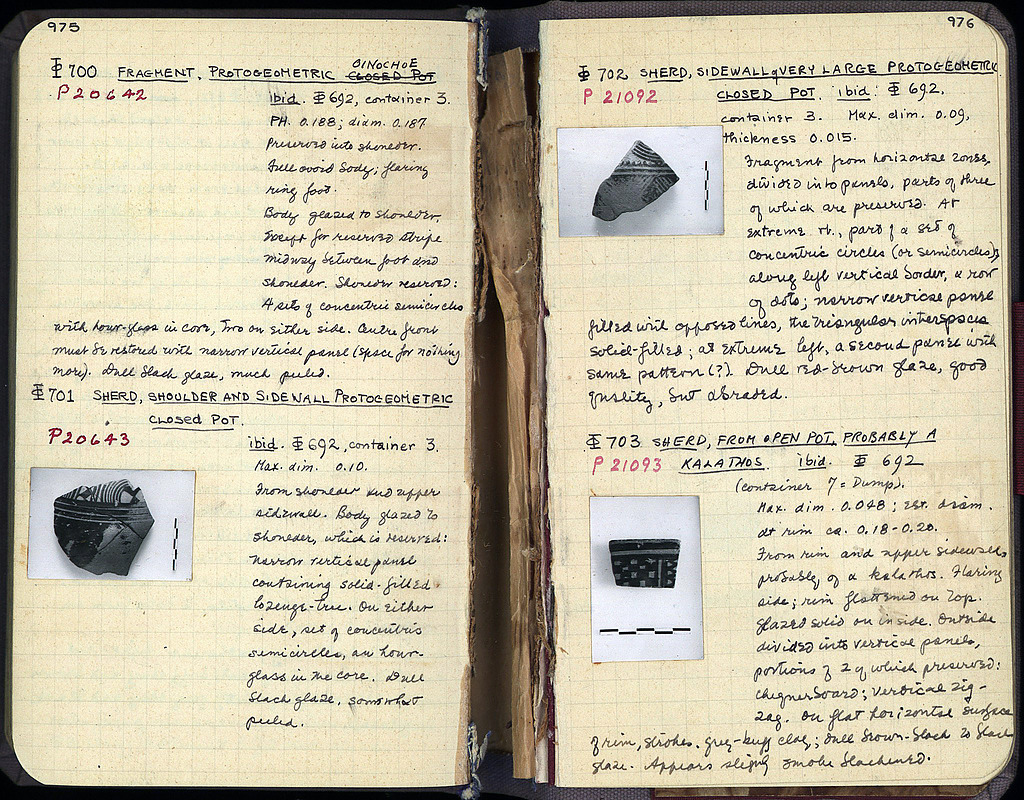 975
OINOCHOE
Φ 700 FRAGMENT, PROTOGEOMETRIC CLOSED POT
P 20642
ibid. Φ 692, container 3.
PH. 0.188; diam. 0.187
Preserved into shoulder.
Full ovoid body; flaring
ring foot.
Body glazed to shoulder,
except for reserved stripe
midway between foot and
shoulder. Shoulder reserved:
4 sets of concentric semicircles
with hour-glass in core, two on either side. Centre front
must be restored with narrow vertical panel (space for nothing
more). Dull black glaze, much peeled.
Φ 701 SHERD, SHOULDER AND SIDEWALL PROTOGEOMETRIC
CLOSED POT.
P 20643
ibid. Φ 692, container 3.
Max. dim. 0.10.
From shoulder and upper
sidewall. Body glazed to
shoulder, which is reserved:
narrow vertical panel
containing solid-filled
lozenge-tree. On either
side, set of concentric
semicircles, an hour-
glass in the core. Dull
black glaze, somewhat
peeled.
976
Φ 702 SHERD, SIDEWALL of VERY LARGE PROTOGEOMETRIC
P 21092
CLOSED POT. ibid: Φ 692,
container 3. Max. dim. 0.09,
thickness 0.015.
Fragment from horizontal zones,
divided into panels, parts of three
of which are preserved. At
extreme rt., part of a set of
concentric circles (or semicircles);
along left vertical border, a row
of dots; narrow vertical panel
filled with opposed lines, the triangular interspaces
solid-filled; at extreme left, a second panel with
same pattern (?). Dull red-brown glaze, good
quality, but abraded.
Φ 703 SHERD, FROM OPEN POT, PROBABLY A
P 21093 KALATHOS. ibid. Φ 692
(container 7 = Dump).
Max. dim. 0.048; est. diam.
at rim ca. 0.18-0.20.
From rim and upper sidewall,
probably of a kalathos. Flaring
side; rim flattened on top.
Glazed solid on inside. Outside
divided into vertical panels,
portions of 2 of which preserved:
chequerboard; vertical zig-
zag. On flat horizontal surface
of rim, strokes. Grey-buff clay; dull brown-black to black
glaze. Appears slightly smoke blackened.